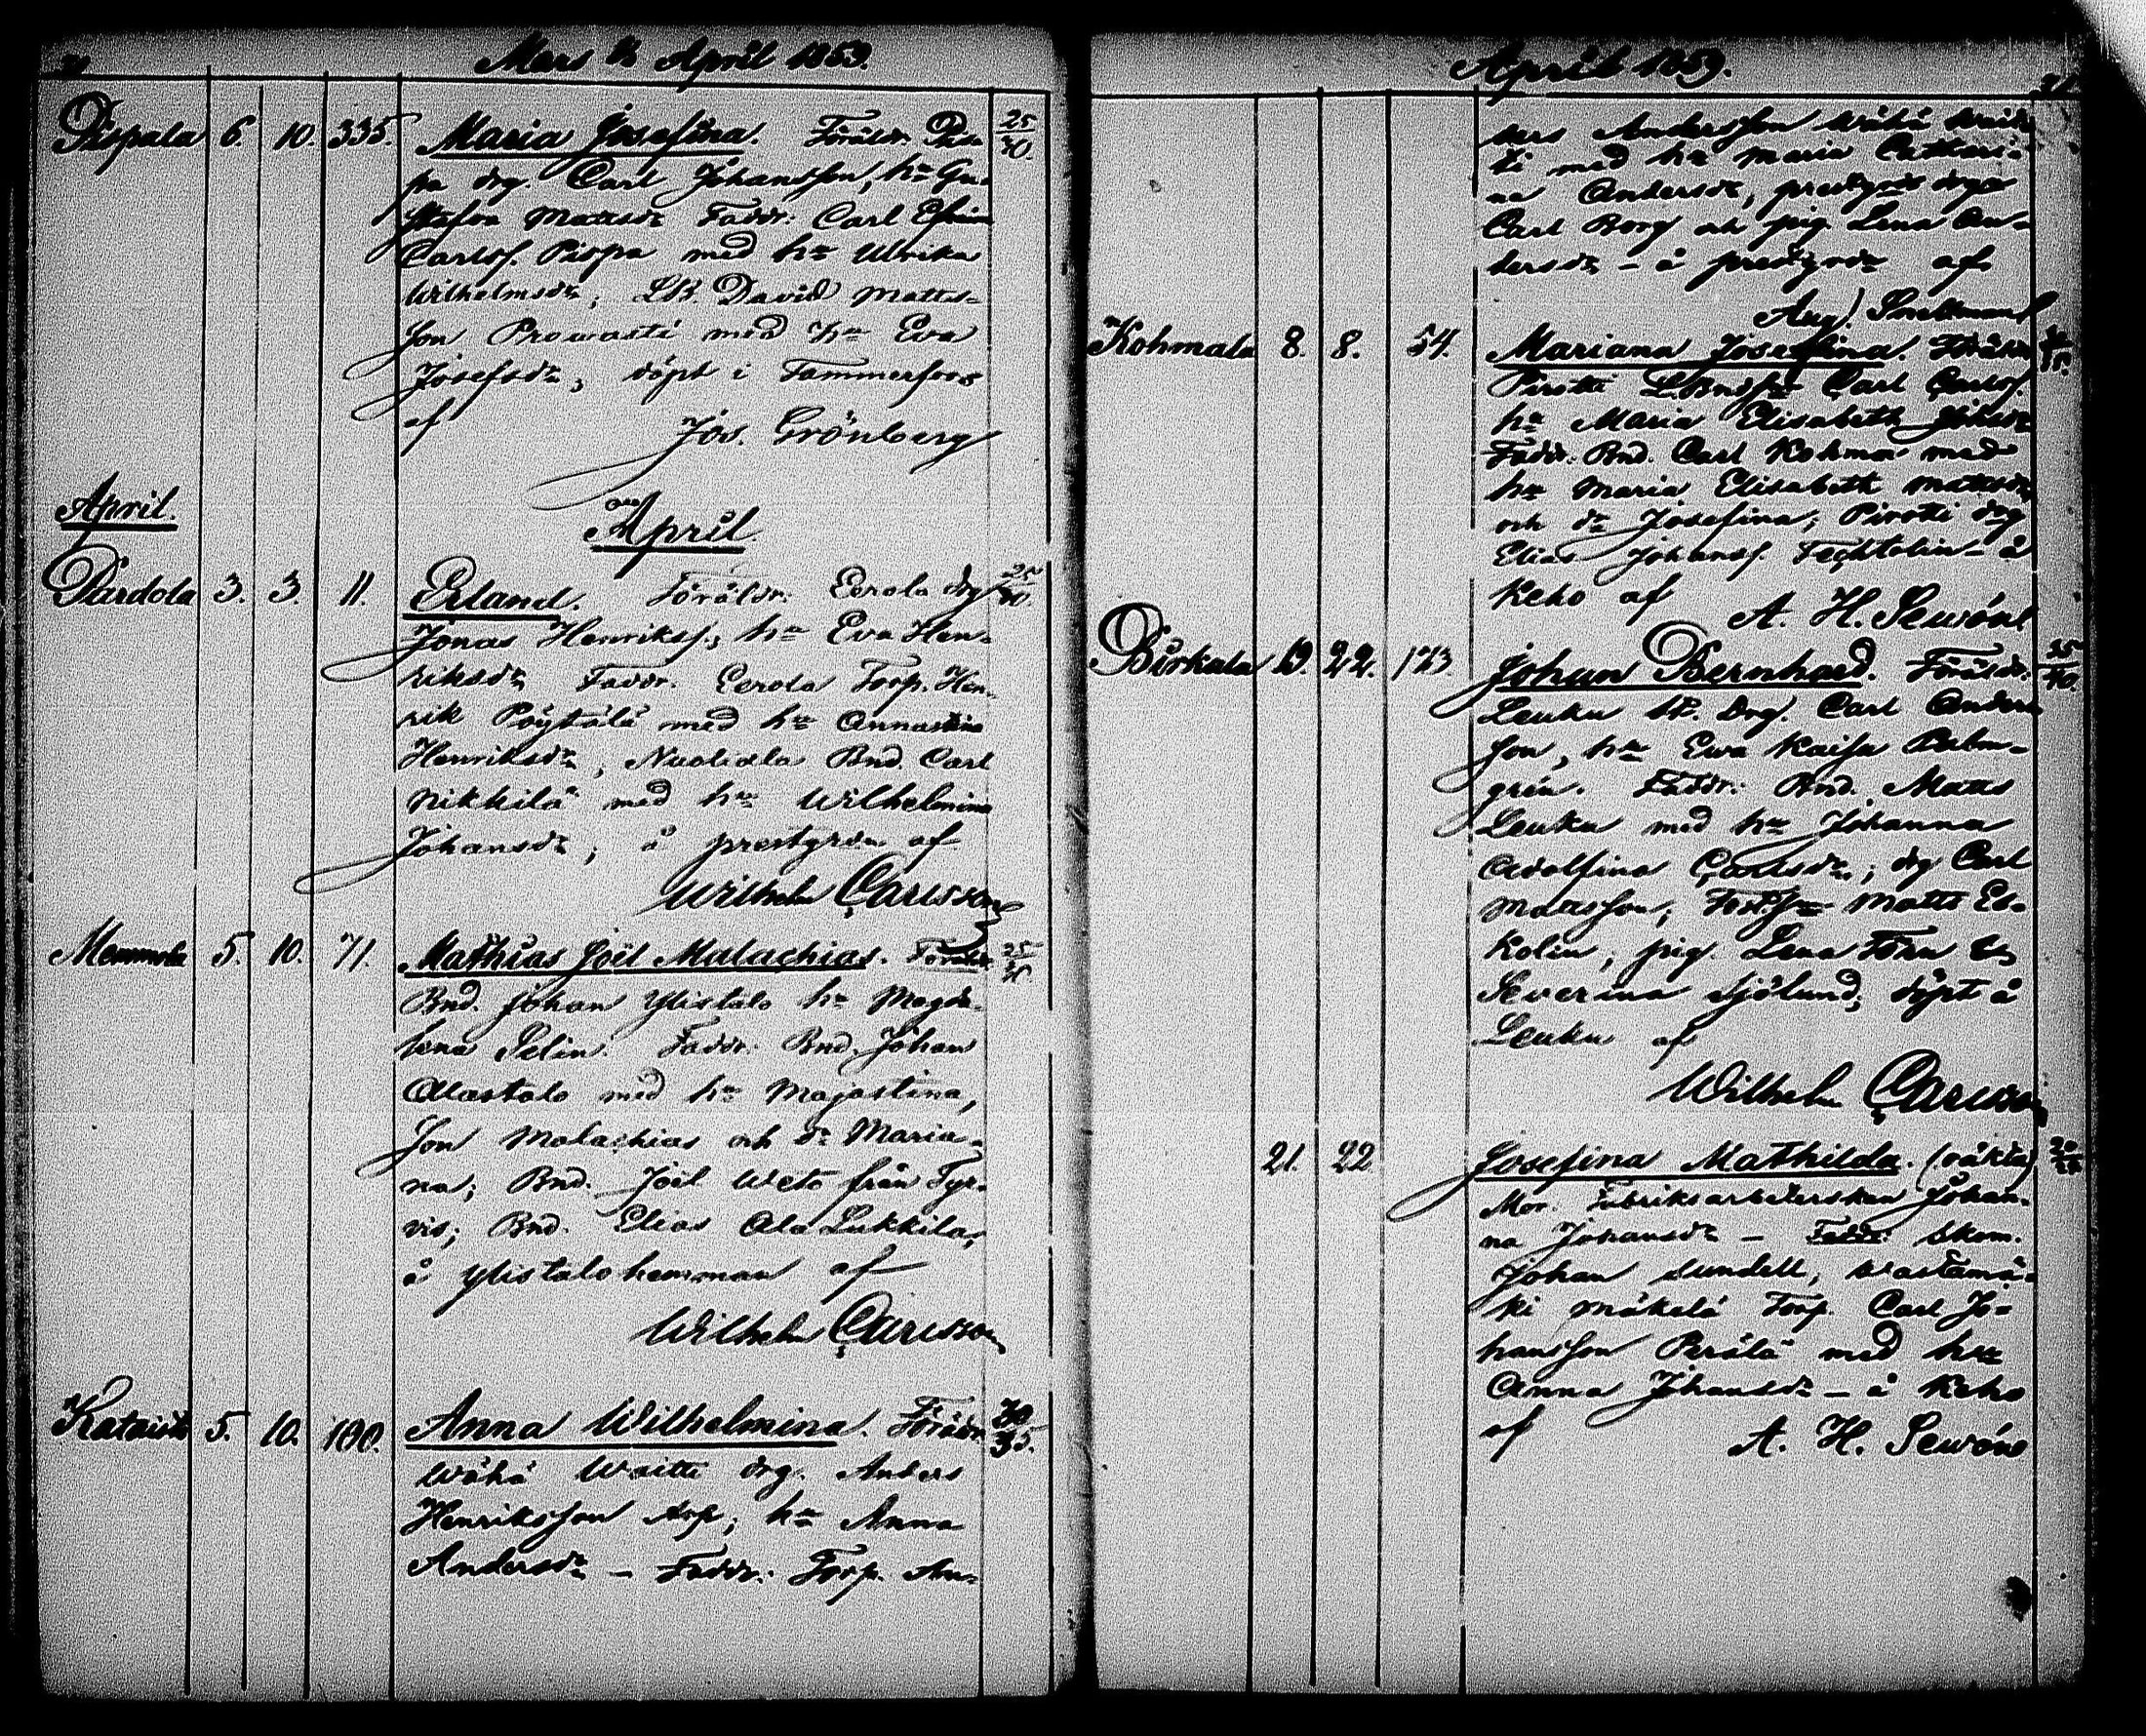 20
Mars & April 1859.
Pispala 6. 10. 335. Maria Josefina. Föräldr. Pis-
pa drg. Carl Johansson, hu Gu- 25/30.
stafva Mattsdr Faddr. Carl Efraim
Carlss. Pispa med hu Ulrika
Wilhelmsdr, Matts-
son Prowasti med hu Eva
Josefsdr, döpt i Tammerfors
af
Jos. Grönberg
April. April.
Pardola 3. 3. 11. Erland. Föräldr. Eerola drg
Jonas Henrikss., hu Eva Hen-
riksdr Faddr. Eerola Torp. Hen-
rik Pöytälä med hu Annastina
Henriksdr, Nuoliala Bnd. Carl
Nikkilä med hu Wilhelmina
Johansdr, å prestgrdn af
Wilhelm Carlsson
5. 10. 71. Mathias Joël Malachias. Föräldr.
Bnd. Johan Ylistalo hu Magda-
lena Selin. Faddr. Bnd. Johan
Alastalo med hu Majastina,
Son Malachias och dr Maria-
na; Bnd. Joël Weto från Tyr-
vis; Bnd. Elias Ala Lukkila,
å Ylistalo hemman af
Wilhelm Carlsson
Kataisto 5. 10. 190. Anna Wilhelmina. Föräldr. 30/35.
Wähä Waitti drg. Anders
Henriksson Asp, hu Anna
Andersdr – Faddr. Torp. An-
April 1859. 21
ders Andersson Wähä Wait-
ti med hu Maria Cathari-
na Andersdr, prestgrds drgn
Carl Borg och pig. Lena An-
dersdr – å prestgrdn af
Aug. Snellman
Kohmala 8. 8. 54. Mariana Josefina. Föräldr.
Pirotti Carl Carlss.
hu Maria Elisabeth Johansdr
Faddr. Bnd. Carl Kohma med
hu Maria Elisabeth Mattsdr
och dr Josefina; Pirotti drg
Elias Johanss. – å
Keho af A. H. Sewón
Birkala 19. 22. 123. Johan Bernhard. Föräldr. 35/40.
Leuku drg. Carl Anders-
son, hu Ewa Kaisa Palm-
grén. Faddr. Bnd. Matts
Leuku med hu Johanna
Adolfina Carlsdr; drg Carl
Mattsson; Matts Es-
kolin; pig. Lena &
Severina Sjölund; döpt å
Leuku af
Wilhelm Carlsson
21. 22 Josefina Mathilda. (oäkta)
Mor. Fabriksarbeterskan Johan-
na Johansdr – Faddr. Skom.
Johan Sundell, Wastamä-
ki Mäkelä Torp. Carl Jo-
hansson Perälä med hu
Anna Johansdr – å Keho
af A. H. Sewón